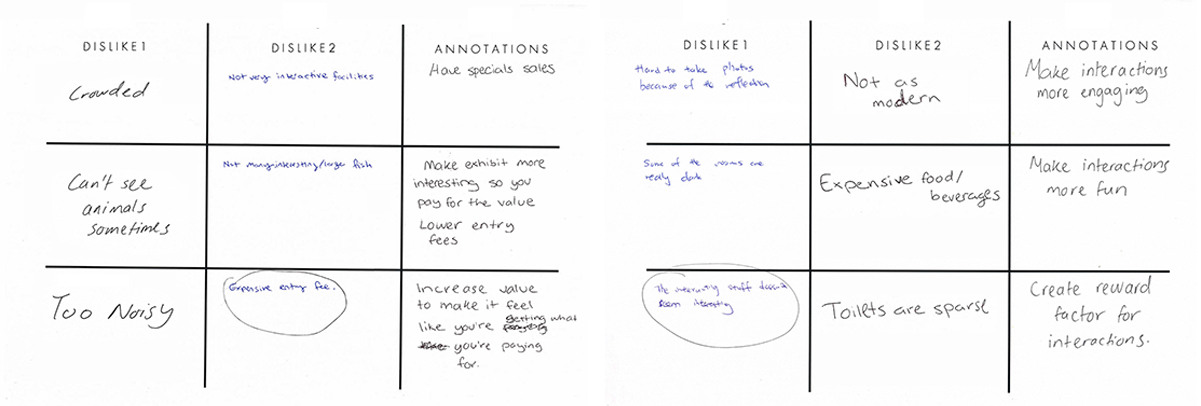 DISLIKE1
DISLIKE2
ANNOTATIONS
Crowded
Not very interactive facilities
Have specials sales
Can't see
animals
sometimes
Not many interesting/large fish
Make exhibit more
interesting so you
pay for the value
Lower entry
fees
Too Noisy
Expensive entry fee.
Increase value
to make it feel
like you're getting what
you're paying
for.
DISLIKE1
DISLIKE2
ANNOTATIONS
Hard to take photos
because of the reflection
Not as
modern
Make interactions
more engaging
Some of the rooms are
really dark
Expensive food/
beverages
Make interactions
more fun
The interacting stuff doesn't
seem interesting
Toilets are sparse
Create reward
factor for
interactions.